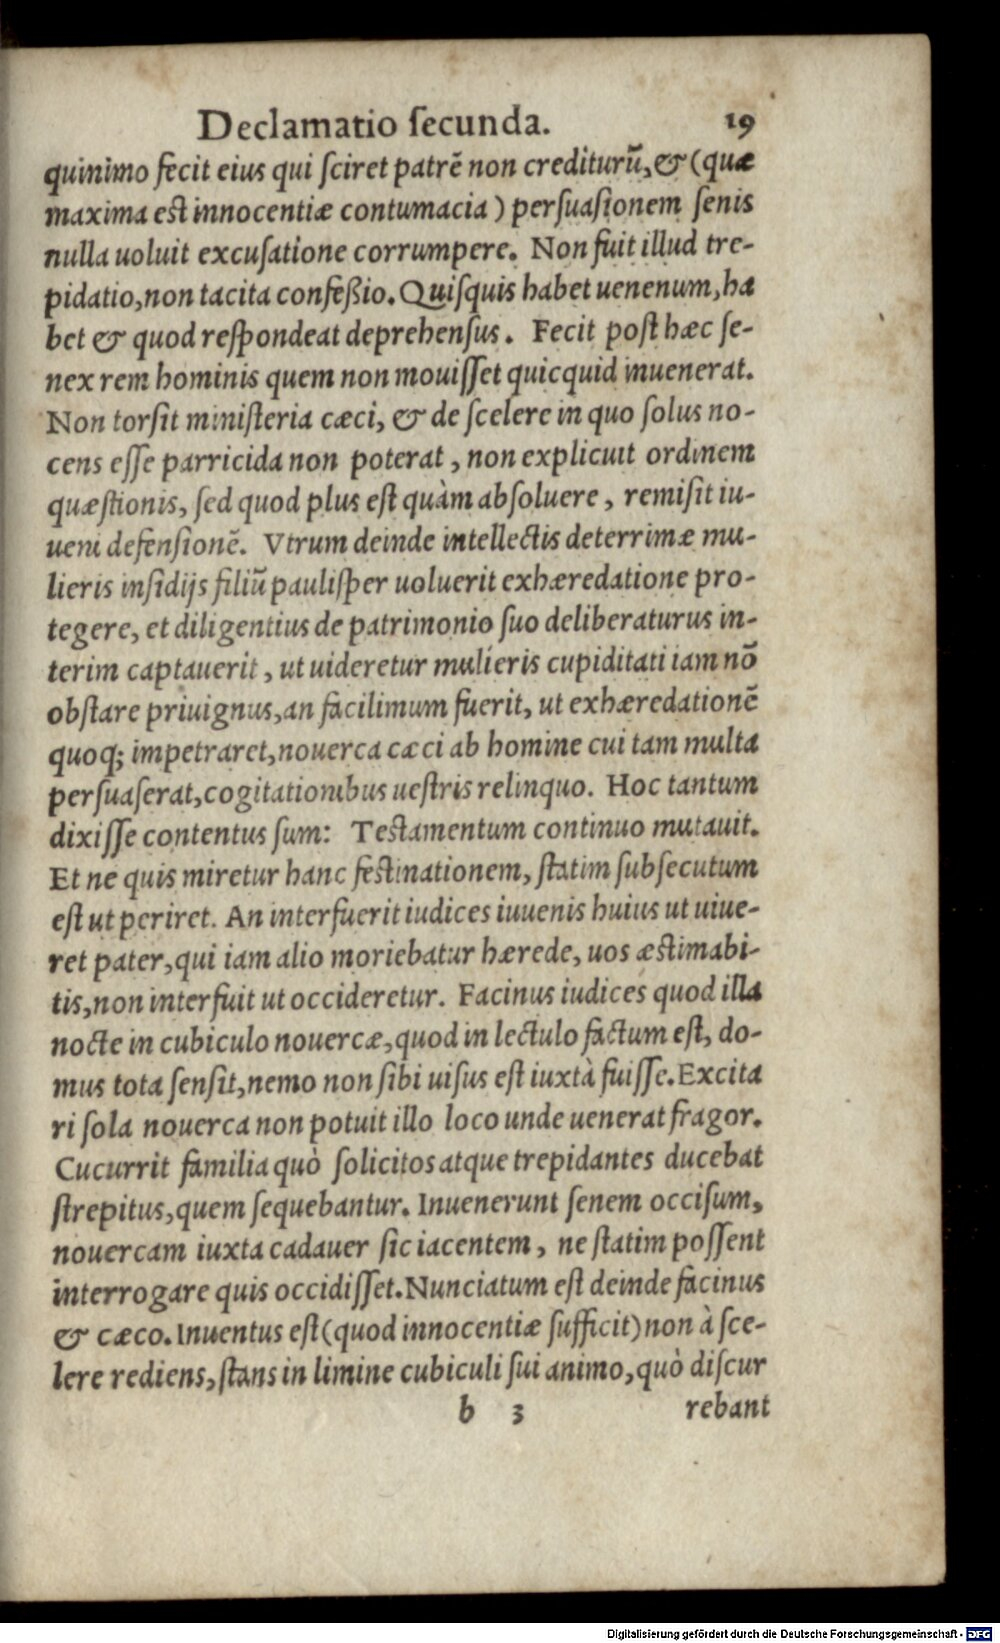 Declamatio ſecunda. 19
quinimo fecit eius qui ſciret patrẽ non crediturũ, & (quæ
maxima est innocentiæ contumacia) perſuaſionem ſenis
nulla uoluit excuſatione corrumpere. Non fuit illud tre-
pidatio, non tacita confeßio. Quiſquis habet uenenum, ha
bet & quod reſpondeat deprehenſus. Fecit poſt hæc ſe-
nex rem hominis quem non mouiſſet quicquid inuenerat.
Non torſit miniſteria cæci, & de ſcelere in quo ſolus no-
cens eſſe parricida non poterat, non explicuit ordinem
quæſtionis, ſed quod plus eſt quàm abſoluere, remiſit iu-
ueni defenſionẽ. Vtrum deinde intellectis deterrimæ mu-
lieris inſidijs filiũ pauliſper uoluerit exhæredatione pro-
tegere, et diligentius de patrimonio ſuo deliberaturus in-
terim captauerit, ut uideretur mulieris cupiditati iam nõ
obſtare priuignus, an facilimum fuerit, ut exhæredationẽ
quoq; impetraret, nouerca cæci ab homine cui tam multa
perſuaſerat, cogitationibus ueſtris relinquo. Hoc tantum
dixiſſe contentus ſum: Teſtamentum continuo mutauit.
Et ne quis miretur hanc feſtinationem, ſtatim ſubſecutum
eſt ut periret. An interfuerit iudices iuuenis huius ut uiue-
ret pater, qui iam alio moriebatur hærede, uos æſtimabi-
tis, non interfuit ut occideretur. Facinus iudices quod illa
nocte in cubiculo nouercæ, quod in lectulo factum eſt, do-
mus tota ſenſit, nemo non ſibi uiſus eſt iuxtà fuiſſe. Excita
ri ſola nouerca non potuit illo loco unde uenerat fragor.
Cucurrit familia quò ſolicitos atque trepidantes ducebat
ſtrepitus, quem ſequebantur. Inuenerunt ſenem occiſum,
nouercam iuxta cadauer ſic iacentem, ne ſtatim poſſent
interrogare quis occidiſſet. Nunciatum eſt deinde facinus
& cæco. Inuentus eſt (quod innocentiæ ſufficit) non à ſce-
lere rediens, ſtans in limine cubiculi ſui animo, quò diſcur
b 3 rebant
Digitalisierung gefördert durch die Deutsche Forschungsgemeinschaft - DFG